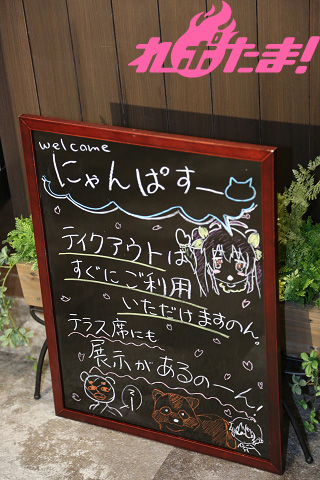 れポたま!
welcome
にゃんぱすー
テイクアウトは
すぐにご利用
いただけますのん。
テラス席にも
展示があるのーん!